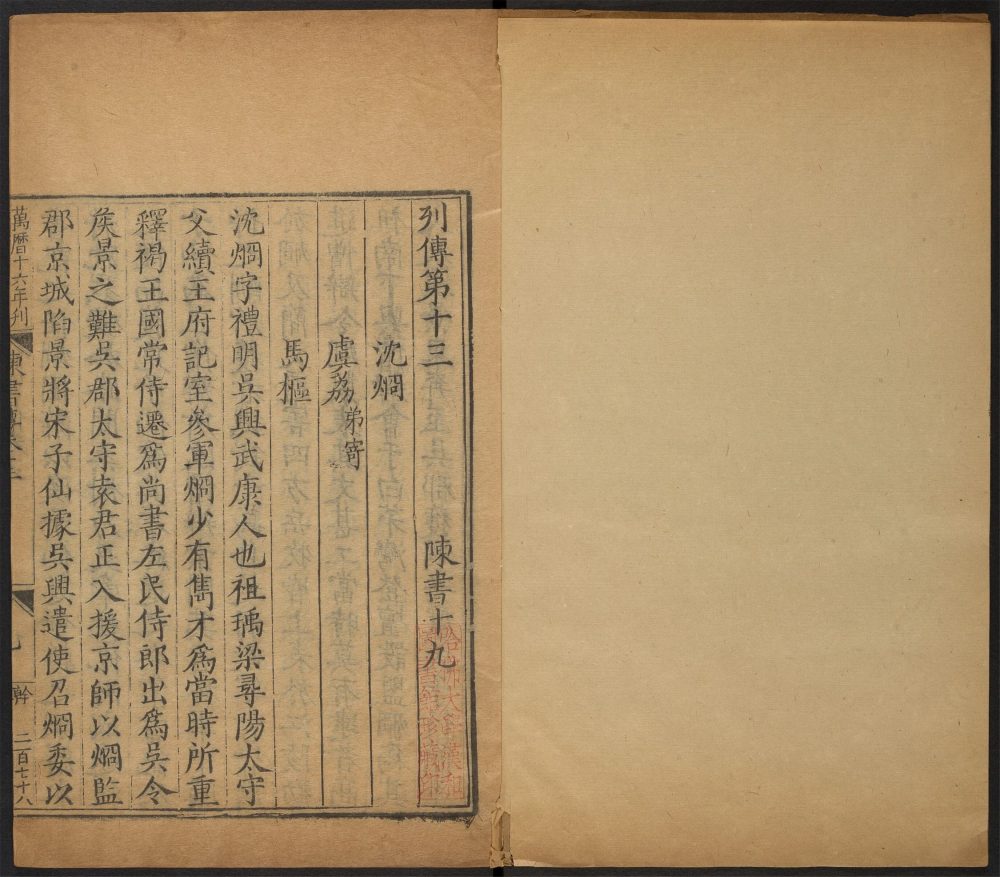 列傳第十三 陳書十九
沈烱
虞荔 弟寄
馬樞
沈烱字禮明吳興武康人也祖瑀梁尋陽太守
父續王府記室參軍烱少有雋才爲當時所重
釋褐王國常侍遷爲尚書左民侍郎出爲吳令
矦景之難吳郡太守袁君正入援京師以烱監
郡京城陷景將宋子仙據吳興遣使召烱委以
萬曆十六年刋
陳書
二百七十八
哈佛大學漢和
圖書館珍藏印